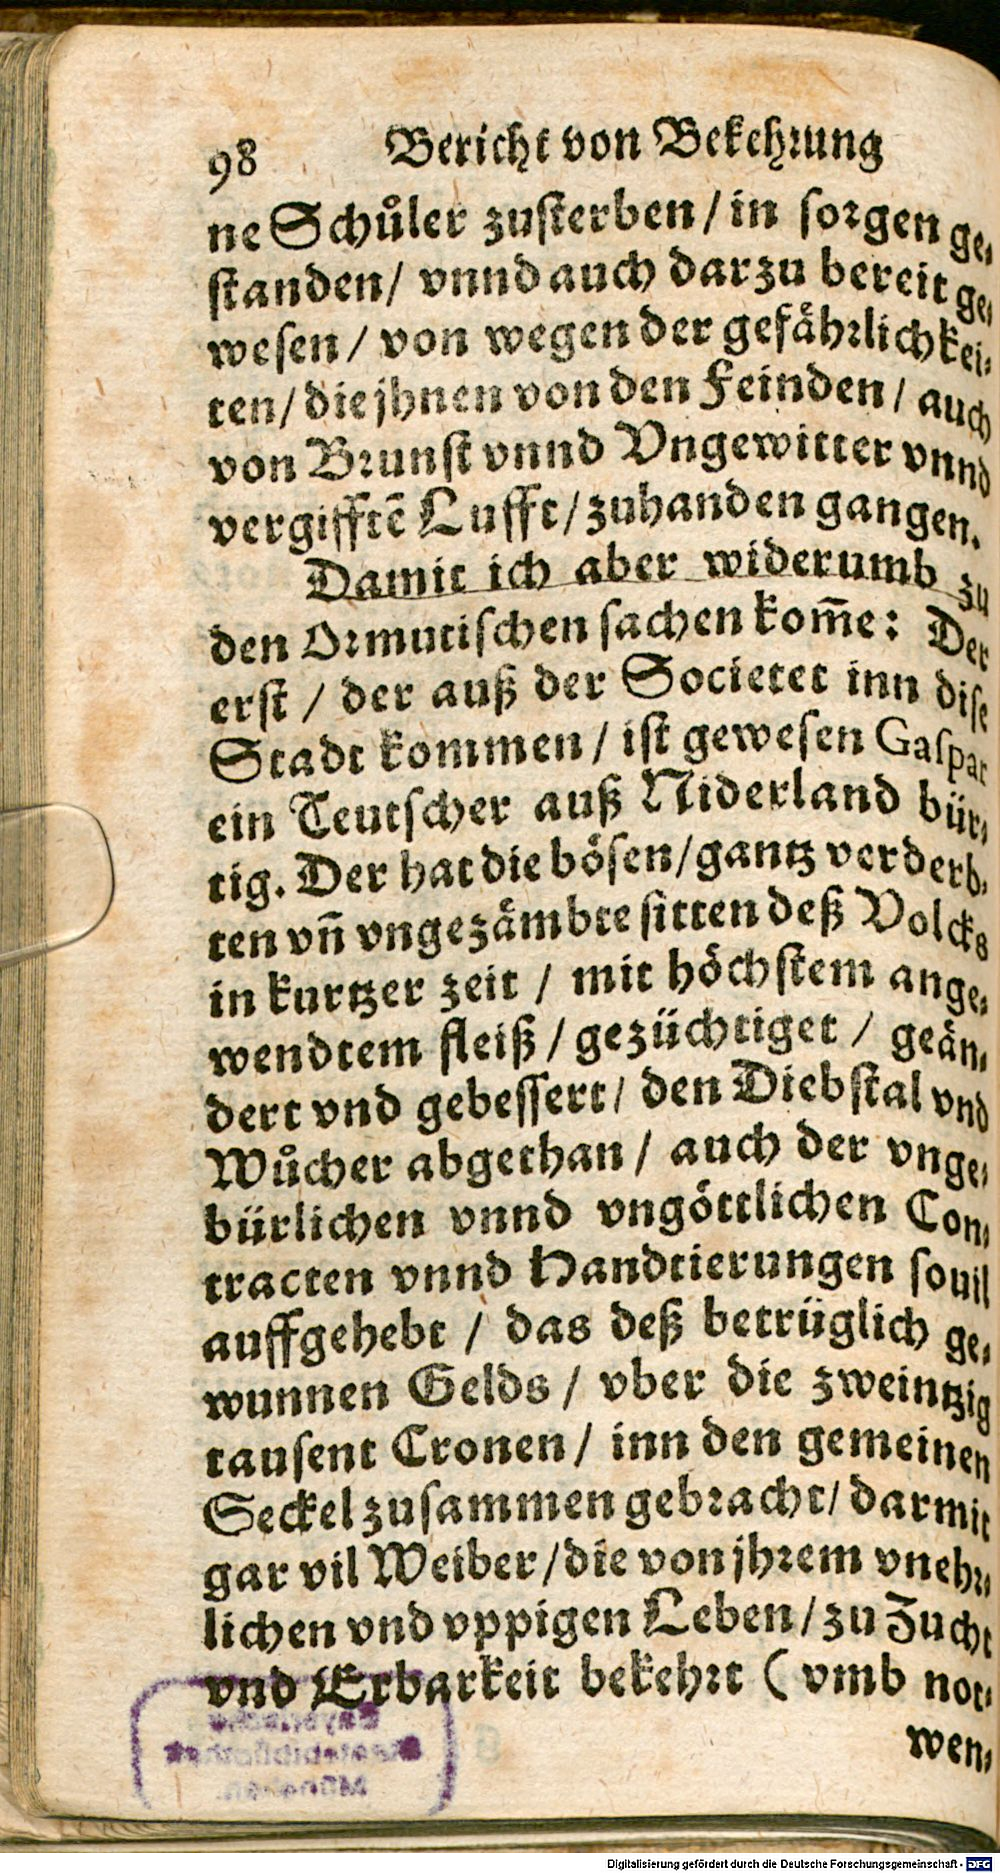 98 Bericht von Bekehrung
ne Schůler zusterben / in sorgen ge-
standen / vnnd auch darzu bereit ge-
wesen / von wegen der gefährlichkei-
ten / die jhnen von den Feinden / auch
von Brunst vnnd Vngewitter vnnd
vergifftē Lufft / zuhanden gangen.
Damit ich aber widerumb zu
den Ormutischen sachen kom̄e: Der
erst / der auß der Societet inn dise
Stadt kommen / ist gewesen Gaspar
ein Teutscher auß Niderland bür-
tig. Der hat die bösen / gantz verderb-
ten vn̄ vngezämbte sitten deß Volcks
in kurtzer zeit / mit höchstem ange-
wendtem fleiß / gezüchtiget / geän-
dert vnd gebessert / den Diebstal vnd
Wůcher abgethan / auch der vnge-
bürlichen vnnd vngöttlichen Con-
tracten vnnd Handtierungen souil
auffgehebt / das deß betrüglich ge-
wunnen Gelds / vber die zweintzig
tausent Cronen / inn den gemeinen
Seckel zusammen gebracht / darmit
gar vil Weiber / die von jhrem vnehr-
lichen vnd vppigen Leben / zu Zucht
vnd Erbarkeit bekehrt ( vmb not-
wen-
Digitalisierung gefördert durch die Deutsche Forschungsgemeinschaft - DFG